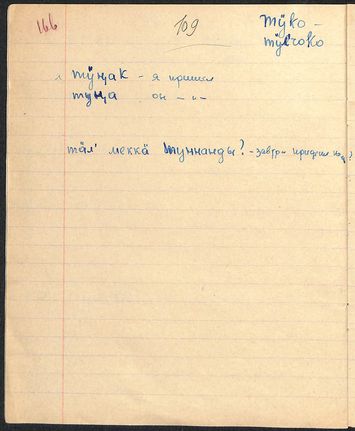 166
109
тӱко -
тӱлчоко
тӱӊак - я пришел
туӊа он - „ -
тӓл' меккӓ туннанды? - завтра придешь